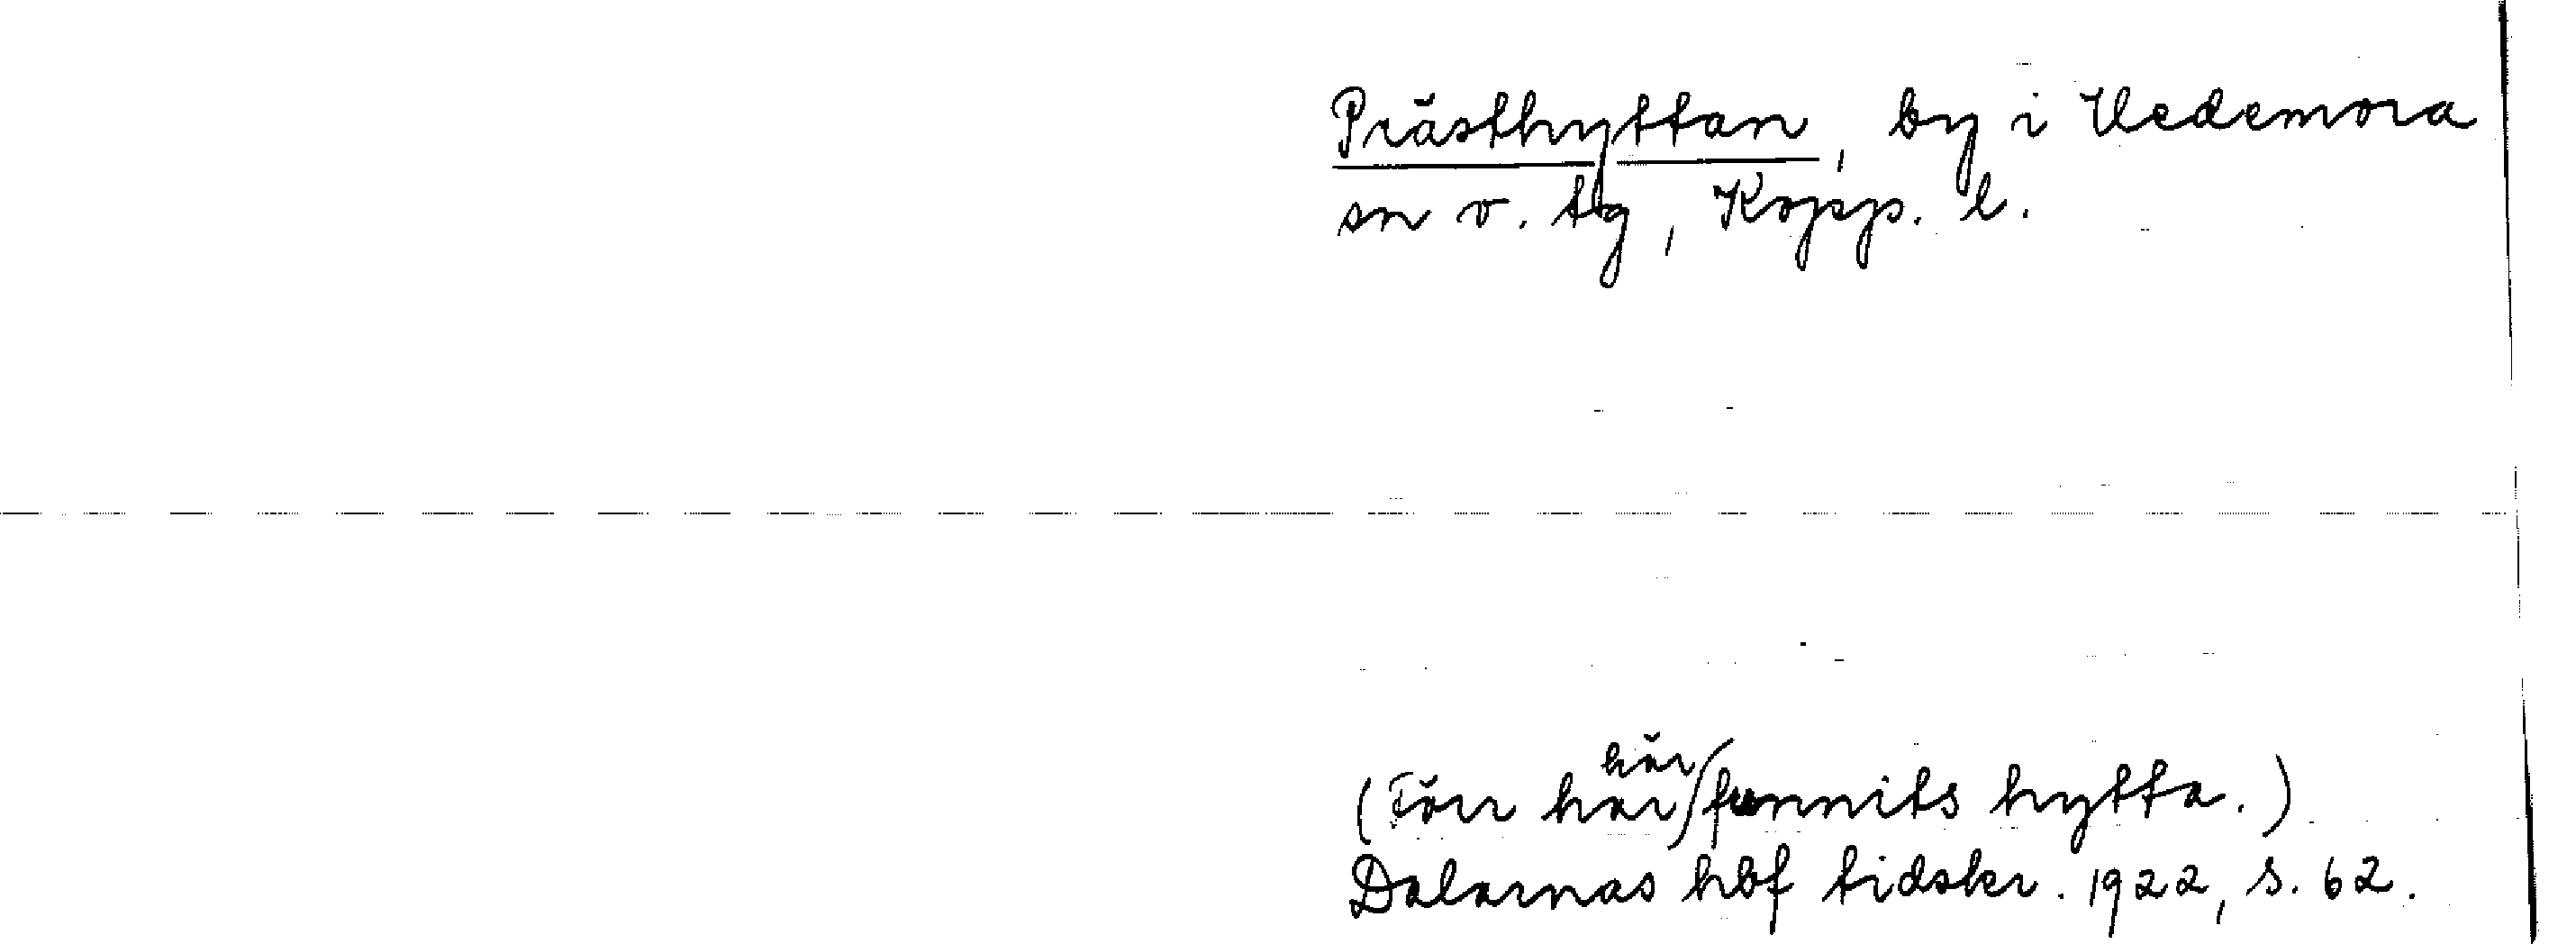 Prästhyttan, by i Hedemora
sn o. tg, Kopp. l.
(Förr har här funnits hytta.)
Dalarnas hbf tidskr. 1922, s. 62.